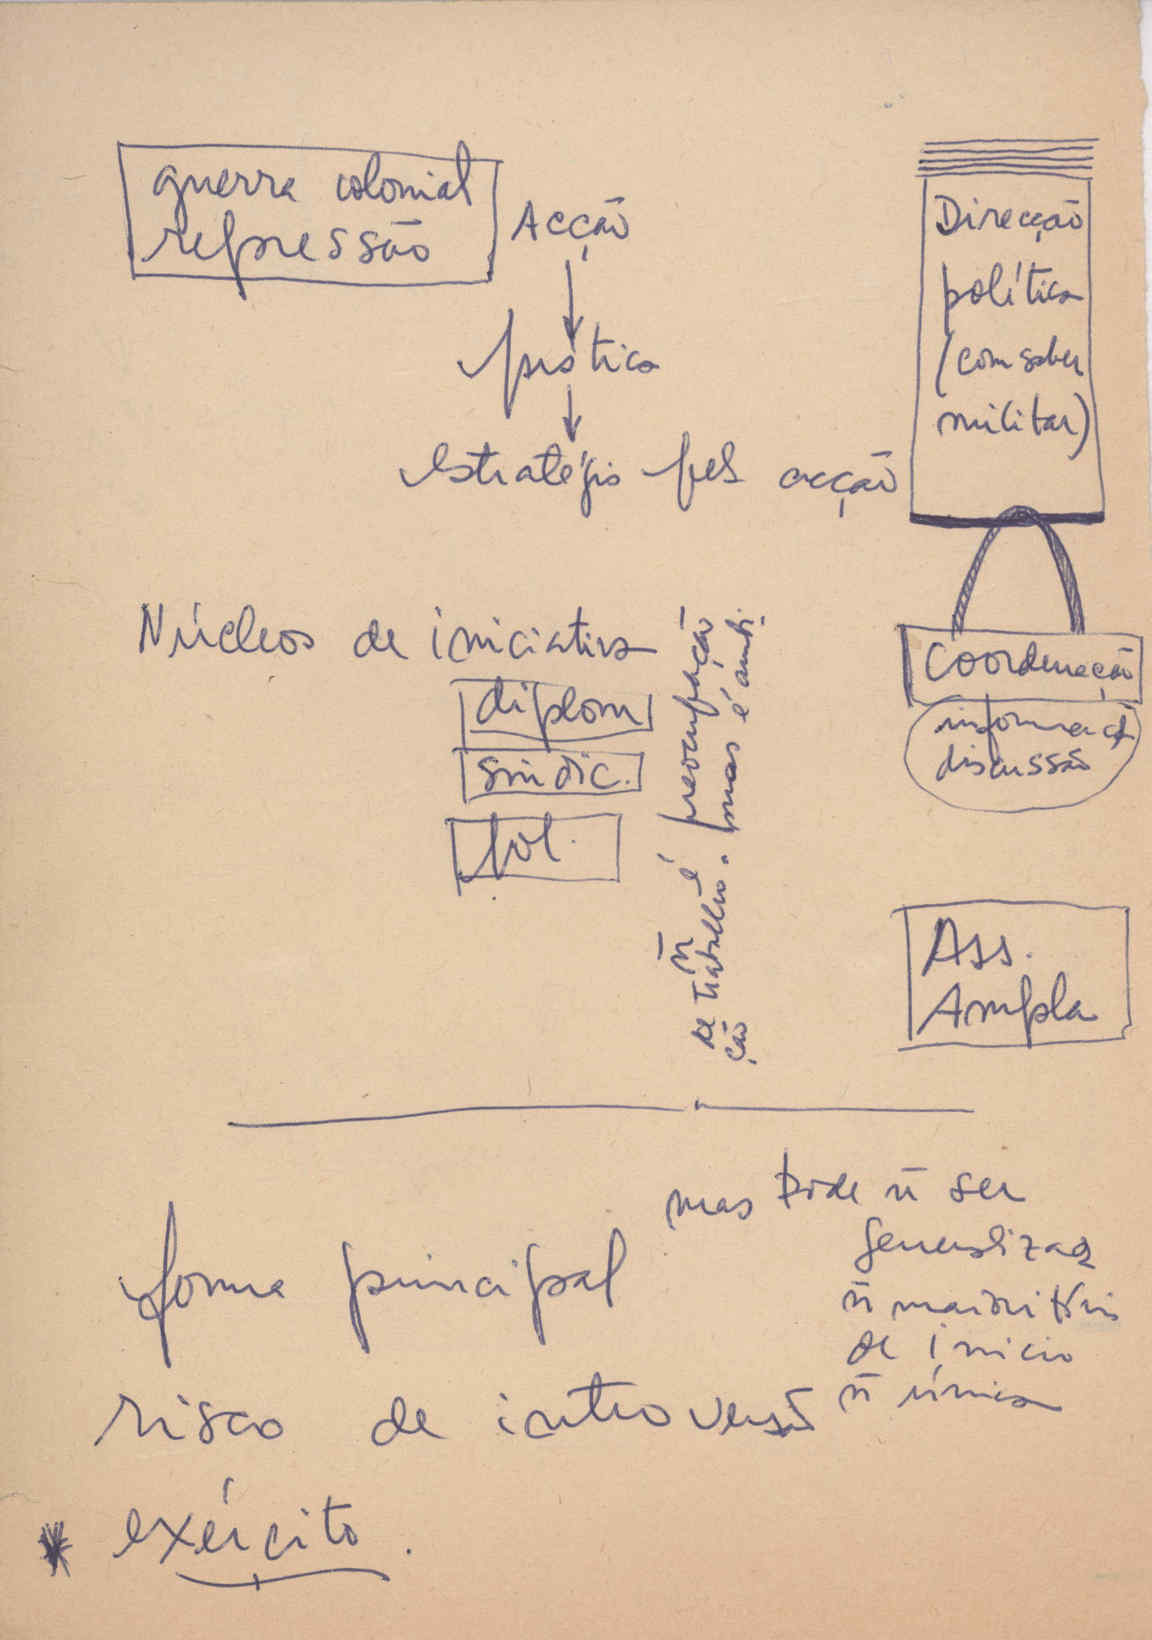 guerra colonial
repressão
Acção
prática
estratégia pela acção
Direcção
política
(com saber
militar)
Núcleos de iniciativa
diplom
sindic.
pol.
n̄ é preocupação
de trabalho. mas é ambi.
ção
Coordenação
informação
discussão
Ass.
Ampla
mas pode n̄ ser
generalizada
n̄ maioritária
de início
n̄ única
forma principal
risco de introversão
* exército.